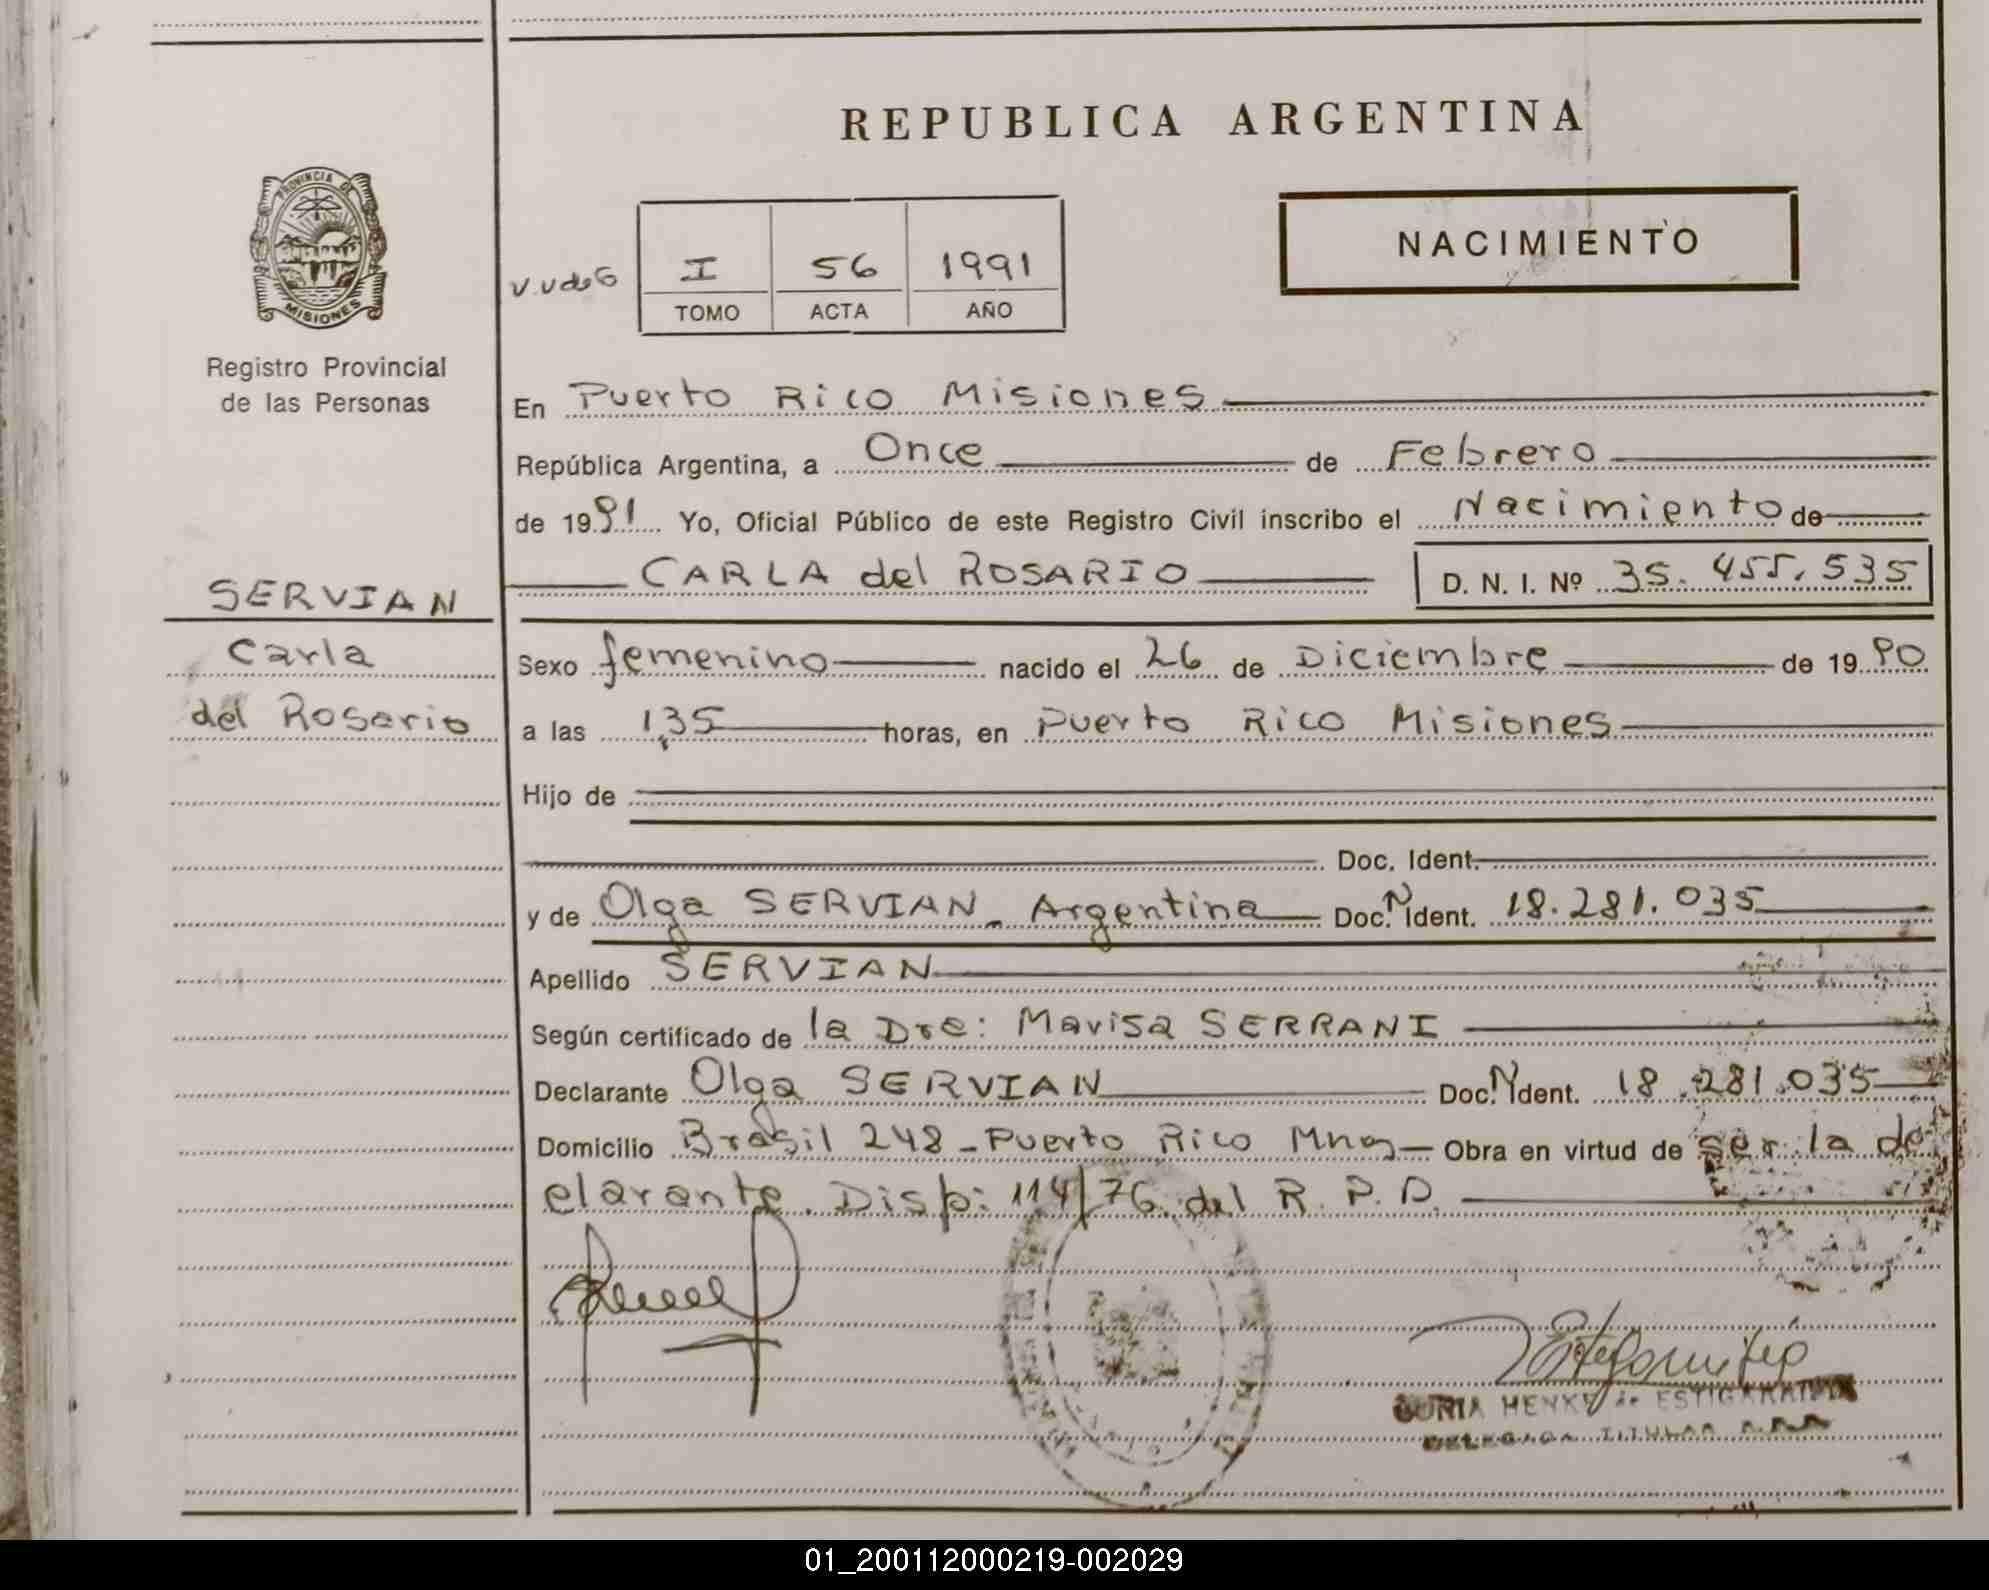 REPUBLICA ARGENTINA
PROVINCIA DE
MISIONES
Registro Provincial
de las Personas
I 56 1991
TOMO ACTA AÑO
NACIMIENTO
En Puerto Rico Misiones
República Argentina, a Once de Febrero
de 1991 Yo, Oficial Público de este Registro Civil inscribo el Nacimiento de
CARLA del ROSARIO D. N. I. Nº 35.455.535
SERVIAN
Carla
del Rosario
Sexo femenino nacido el 26 de Diciembre de 1990
a las 1,35 horas, en Puerto Rico Misiones
Hijo de
Doc. Ident.
y de Olga SERVIAN - Argentina Doc. N Ident. 18.281.035
Apellido SERVIAN
Según certificado de la Dra: Marisa SERRANI
Declarante Olga SERVIAN Doc. N Ident. 18.281.035
Domicilio Brasil 248 - Puerto Rico Mnes Obra en virtud de ser la de
clarante. Disp: 114/76 del R. P. P.
HENKE de ESTIGARRIBIA
DELEGADA TITULAR
01_200112000219-002029